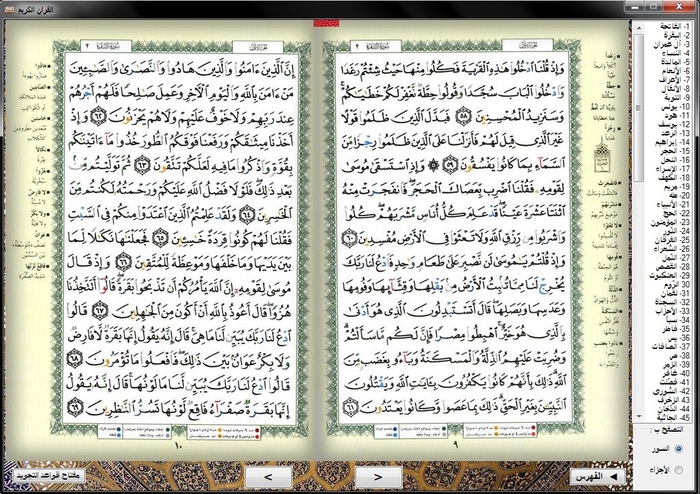 القرآن الكريم
سُورَةُ البَقَرَةِ ٢
وَإِذْ قُلْنَا ٱدْخُلُوا۟ هَٰذِهِ ٱلْقَرْيَةَ فَكُلُوا۟ مِنْهَا حَيْثُ شِئْتُمْ رَغَدًا
وَٱدْخُلُوا۟ ٱلْبَابَ سُجَّدًا وَقُولُوا۟ حِطَّةٌ نَّغْفِرْ لَكُمْ خَطَٰيَٰكُمْ ۚ
وَسَنَزِيدُ ٱلْمُحْسِنِينَ ٥٨ فَبَدَّلَ ٱلَّذِينَ ظَلَمُوا۟ قَوْلًا
غَيْرَ ٱلَّذِى قِيلَ لَهُمْ فَأَنزَلْنَا عَلَى ٱلَّذِينَ ظَلَمُوا۟ رِجْزًا مِّنَ
ٱلسَّمَآءِ بِمَا كَانُوا۟ يَفْسُقُونَ ٥٩ ۞ وَإِذِ ٱسْتَسْقَىٰ مُوسَىٰ
لِقَوْمِهِۦ فَقُلْنَا ٱضْرِب بِّعَصَاكَ ٱلْحَجَرَ ۖ فَٱنفَجَرَتْ مِنْهُ
ٱثْنَتَا عَشْرَةَ عَيْنًا ۖ قَدْ عَلِمَ كُلُّ أُنَاسٍ مَّشْرَبَهُمْ ۖ كُلُوا۟
وَٱشْرَبُوا۟ مِن رِّزْقِ ٱللَّهِ وَلَا تَعْثَوْا۟ فِى ٱلْأَرْضِ مُفْسِدِينَ ٦٠
وَإِذْ قُلْتُمْ يَٰمُوسَىٰ لَن نَّصْبِرَ عَلَىٰ طَعَامٍ وَٰحِدٍ فَٱدْعُ لَنَا رَبَّكَ
يُخْرِجْ لَنَا مِمَّا تُنۢبِتُ ٱلْأَرْضُ مِنۢ بَقْلِهَا وَقِثَّآئِهَا وَفُومِهَا
وَعَدَسِهَا وَبَصَلِهَا ۖ قَالَ أَتَسْتَبْدِلُونَ ٱلَّذِى هُوَ أَدْنَىٰ
بِٱلَّذِى هُوَ خَيْرٌ ۚ ٱهْبِطُوا۟ مِصْرًا فَإِنَّ لَكُم مَّا سَأَلْتُمْ ۗ
وَضُرِبَتْ عَلَيْهِمُ ٱلذِّلَّةُ وَٱلْمَسْكَنَةُ وَبَآءُو بِغَضَبٍ مِّنَ
ٱللَّهِ ۗ ذَٰلِكَ بِأَنَّهُمْ كَانُوا۟ يَكْفُرُونَ بِـَٔايَٰتِ ٱللَّهِ وَيَقْتُلُونَ
ٱلنَّبِيِّـۧنَ بِغَيْرِ ٱلْحَقِّ ۗ ذَٰلِكَ بِمَا عَصَوا۟ وَّكَانُوا۟ يَعْتَدُونَ ٦١
٩
سُورَةُ البَقَرَةِ ٢
إِنَّ ٱلَّذِينَ ءَامَنُوا۟ وَٱلَّذِينَ هَادُوا۟ وَٱلنَّصَٰرَىٰ وَٱلصَّٰبِـِٔينَ
مَنْ ءَامَنَ بِٱللَّهِ وَٱلْيَوْمِ ٱلْـَٔاخِرِ وَعَمِلَ صَٰلِحًا فَلَهُمْ أَجْرُهُمْ
عِندَ رَبِّهِمْ وَلَا خَوْفٌ عَلَيْهِمْ وَلَا هُمْ يَحْزَنُونَ ٦٢ وَإِذْ
أَخَذْنَا مِيثَٰقَكُمْ وَرَفَعْنَا فَوْقَكُمُ ٱلطُّورَ خُذُوا۟ مَآ ءَاتَيْنَٰكُم
بِقُوَّةٍ وَٱذْكُرُوا۟ مَا فِيهِ لَعَلَّكُمْ تَتَّقُونَ ٦٣ ثُمَّ تَوَلَّيْتُم مِّنۢ
بَعْدِ ذَٰلِكَ ۖ فَلَوْلَا فَضْلُ ٱللَّهِ عَلَيْكُمْ وَرَحْمَتُهُۥ لَكُنتُم مِّنَ
ٱلْخَٰسِرِينَ ٦٤ وَلَقَدْ عَلِمْتُمُ ٱلَّذِينَ ٱعْتَدَوْا۟ مِنكُمْ فِى ٱلسَّبْتِ
فَقُلْنَا لَهُمْ كُونُوا۟ قِرَدَةً خَٰسِـِٔينَ ٦٥ فَجَعَلْنَٰهَا نَكَٰلًا لِّمَا
بَيْنَ يَدَيْهَا وَمَا خَلْفَهَا وَمَوْعِظَةً لِّلْمُتَّقِينَ ٦٦ وَإِذْ قَالَ
مُوسَىٰ لِقَوْمِهِۦٓ إِنَّ ٱللَّهَ يَأْمُرُكُمْ أَن تَذْبَحُوا۟ بَقَرَةً ۖ قَالُوٓا۟ أَتَتَّخِذُنَا
هُزُوًا ۖ قَالَ أَعُوذُ بِٱللَّهِ أَنْ أَكُونَ مِنَ ٱلْجَٰهِلِينَ ٦٧ قَالُوا۟
ٱدْعُ لَنَا رَبَّكَ يُبَيِّن لَّنَا مَا هِىَ ۚ قَالَ إِنَّهُۥ يَقُولُ إِنَّهَا بَقَرَةٌ لَّا فَارِضٌ
وَلَا بِكْرٌ عَوَانٌۢ بَيْنَ ذَٰلِكَ ۖ فَٱفْعَلُوا۟ مَا تُؤْمَرُونَ ٦٨
قَالُوا۟ ٱدْعُ لَنَا رَبَّكَ يُبَيِّن لَّنَا مَا لَوْنُهَا ۚ قَالَ إِنَّهُۥ يَقُولُ
إِنَّهَا بَقَرَةٌ صَفْرَآءُ فَاقِعٌ لَّوْنُهَا تَسُرُّ ٱلنَّٰظِرِينَ ٦٩
١٠
1- الفاتحة
2- البقرة
3- آل عمران
4- النساء
5- المائدة
6- الأنعام
7- الأعراف
8- الأنفال
9- التوبة
10- يونس
11- هود
12- يوسف
13- الرعد
14- إبراهيم
15- الحجر
16- النحل
17- الإسراء
18- الكهف
19- مريم
20- طه
21- الأنبياء
22- الحج
23- المؤمنون
24- النور
25- الفرقان
26- الشعراء
27- النمل
28- القصص
29- العنكبوت
30- الروم
31- لقمان
32- السجدة
33- الأحزاب
34- سبأ
35- فاطر
36- يس
37- الصافات
38- ص
39- الزمر
40- غافر
41- فصلت
42- الشورى
43- الزخرف
44- الدخان
45- الجاثية
التصفح ب :
السور
الأجزاء
الفهرس
<
>
مفتاح قواعد التجويد